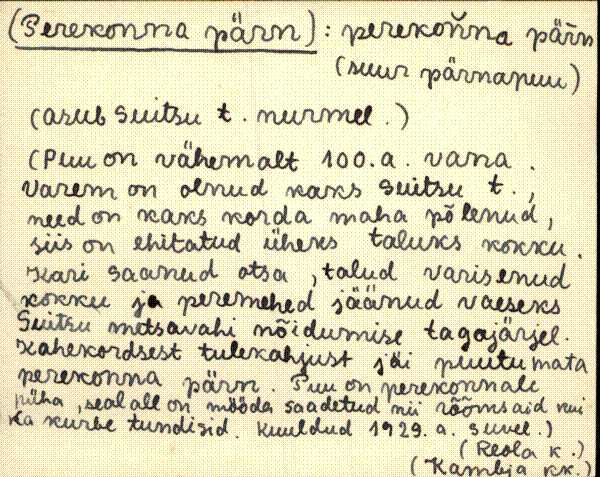 (Perekonna pärn) : perekoňna pärn
(suur pärnapuu)
(asub Suitsu t. nurmel.)
(Puu on vähemalt 100. a. vana.
Varem on olnud kaks Suitsu t.,
need on kaks korda maha põlenud,
siis on ehitatud üheks taluks kokku.
Kari saanud otsa, talud varisenud
kokku ja peremehed jäänud vaeseks
Suitsu metsavahi nõidumise tagajärjel.
Kahekordsest tulekahjust jäi puutumata
perekonna pärn. Puu on perekonnale
püha, seal all on mööda saadetud nii rõõmsaid kui
ka kurbe tundisid. Kuuldud 1929. a. suvel.)
(Reola k.)
(Kambja kk.)